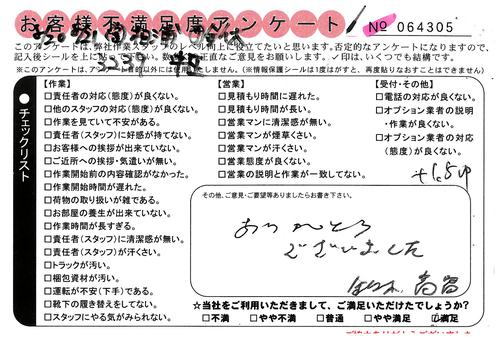 お客様不満足度アンケート
No 064305
このアンケートは、弊社作業スタッフのレベル向上に役立てたいと思います。否定的なアンケートになりますので、
記入後シールを上に貼って下さい。正直なご意見をお願いします。✓印は、いくつでも結構です。
※このアンケートは、アンケート目的以外には使用いたしません。(※情報保護シールは1度はがすと、再度貼りなおすことはできません。)
●チェックリスト
【作業】
□責任者の対応(態度)が良くない。
□他のスタッフの対応(態度)が良くない。
□作業を見ていて不安がある。
□責任者(スタッフ)に好感が持てない。
□お客様への挨拶が出来ていない。
□ご近所への挨拶・気遣いが無い。
□作業開始前の内容確認がなかった。
□作業開始時間が遅れた。
□荷物の取り扱いが雑である。
□お部屋の養生が出来ていない。
□作業時間が長すぎる。
□責任者(スタッフ)に清潔感が無い。
□責任者(スタッフ)が汗くさい。
□トラックが汚い。
□梱包資材が汚い。
□運転が不安(下手)である。
□靴下の履き替えをしてない。
□スタッフにやる気がみられない。
【営業】
□見積もり時間に遅れた。
□見積もり時間が長い。
□営業マンに清潔感が無い。
□営業マンが煙草くさい。
□営業マンが汗くさい。
□営業態度が良くない。
□営業の説明と作業が一致してない。
【受付・その他】
□電話の対応が良くない。
□オプション業者の説明
・作業が良くない。
□オプション業者の対応
(態度)が良くない。
その他、ご意見・ご要望等ありましたらお書き下さい。
ありがとう
ございました
☆当社をご利用いただきまして、ご満足いただけたでしょうか?
□不満 □やや不満 □普通 □やや満足 □満足